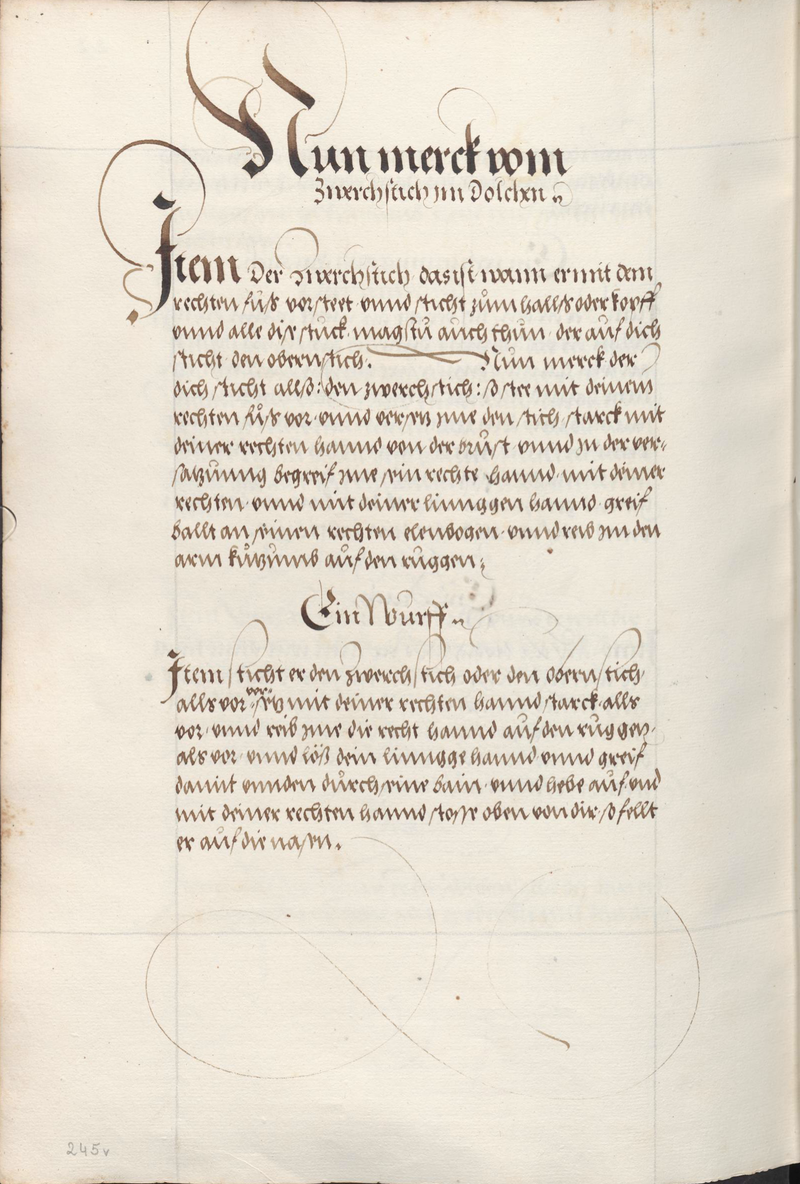 Nun merck vom
Zwerchstich im Dolchen
Item Der zwerchstich das ist wann er mit dem
rechten fůß vorsteet vnnd sticht zům hallß oder kopff
vnnd alle dise stuck magstu auch thun der auf dich
sticht den obern stich. Nun merck der
dich sticht allß: den zwerchstich: so stee mit deinem
rechten fůß vor vnnd versetz jme den stich starck mit
deiner rechten hannd von der brust vnnd jn der ver=
satzunng begreif jme sein rechte hannd mit deiner
rechten vnnd mit deiner linnggen hannd greif
ballt an seinen rechten elenbogen vnnd reib jm den
arm auf den ruggen
Ein Wurff
Item sticht er den zwerchstich oder den obern stich
alls vor versetz mit deiner rechten hannd starck alls
vor vnnd reib jme die recht hannd auf den ruggen
als vor vnnd löß dein linngge hannd vnnd greif
damit vnnden durch seine bain vnnd hebe auf vnd
mit deiner rechten hannd stosse oben von dir so fellt
er auf die nasen.
245v